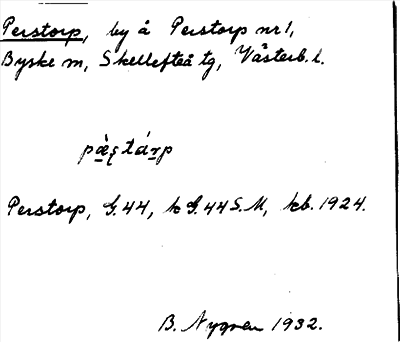 Perstorp, by å Perstorp nr 1,
Byske sn, Skellefteå tg, Västerb. l.
pæ̀ʂtárp
Perstorp, G. 44, k G. 44 S. M, kb. 1924.
B. Nygren 1932.